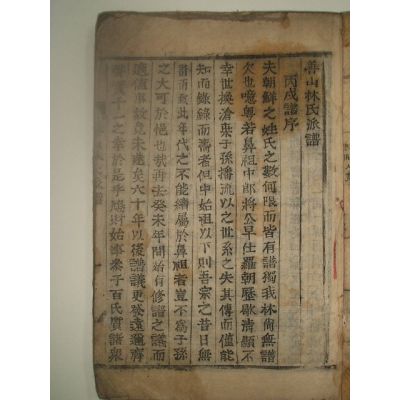 善山林氏派譜
丙戌譜序
夫朝鮮之姓氏之數何限而皆有譜獨我林尙無譜
欠也噫粤若鼻祖中郎將公早仕羅朝歷敭淸顯不
幸世換滄桑子孫播流以之世系之失其傳而値能
知而錄錄而壽者但中始祖以下則吾宗之昔日無
譜而致此年代之不能續屬於鼻祖者豈不爲子孫
之大可於悒也哉再去癸未年間始有修譜之議而
適値事故竟未遂矣六十年以後譜議更發遠邇齊
千一之幸於是乎鳩財始事衆子百氏質諸衆